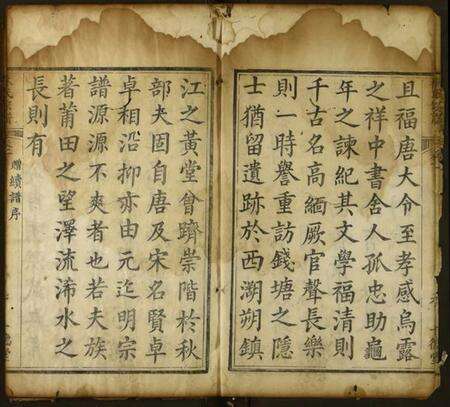 且福唐大令至孝感烏露
之祥中書舍人孤忠助龜
年之諫紀其文學福清則
千古名高緬厥官聲長樂
則一時譽重訪錢塘之隱
士猶留遺跡於西湖朔鎮
江之黃堂會躋崇階於秋
部夫固自唐及宋名賢卓
卓相沿抑亦由元迄明宗
譜源源不爽者也若夫族
著莆田之望澤流浠水之
長則有
續譜序